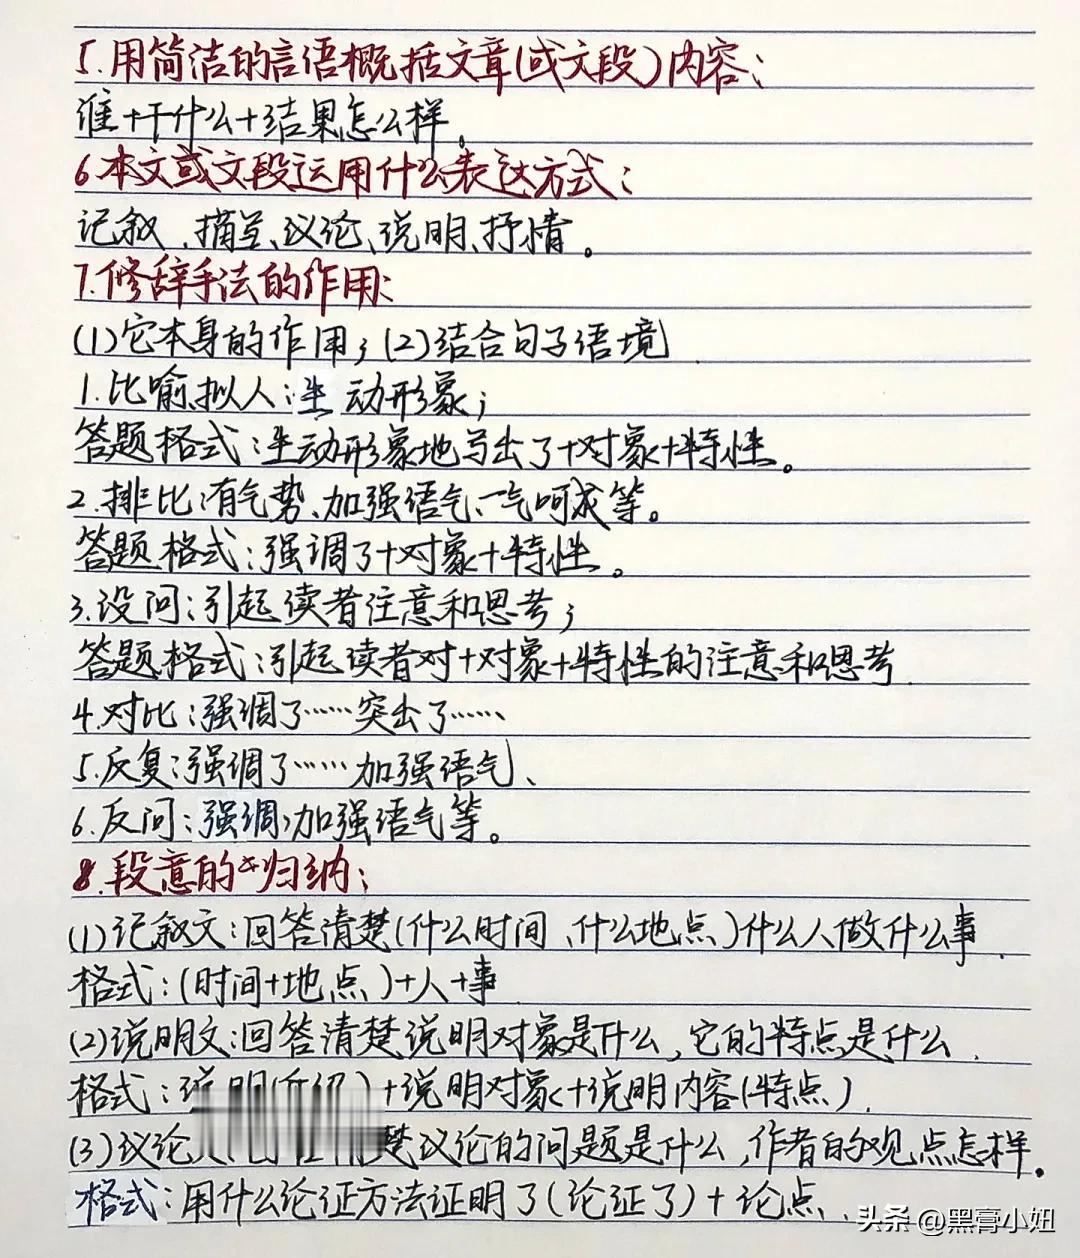 5.用简洁的言语概括文章(或文段)内容:
谁+干什么+结果怎么样。
6本文或文段运用什么表达方式:
记叙、描写、议论、说明、抒情。
7.修辞手法的作用:
(1)它本身的作用;(2)结合句子语境
1.比喻、拟人:生动形象;
答题格式:生动形象地写出了+对象+特性。
2.排比:有气势、加强语气、一气呵成等。
答题格式:强调了+对象+特性。
3.设问:引起读者注意和思考;
答题格式:引起读者对+对象+特性的注意和思考
4.对比:强调了……突出了……
5.反复:强调了……加强语气、
6.反问:强调,加强语气等。
8.段意的归纳:
(1)记叙文:回答清楚(什么时间、什么地点)什么人做什么事.
格式:(时间+地点)+人+事
(2)说明文:回答清楚说明对象是什么,它的特点是什么.
格式:说明(介绍)+说明对象+说明内容(特点).
(3)议论 楚议论的问题是什么,作者的观点怎样。
格式:用什么论证方法证明了(论证了)+论点.
头条 @黑膏小妞